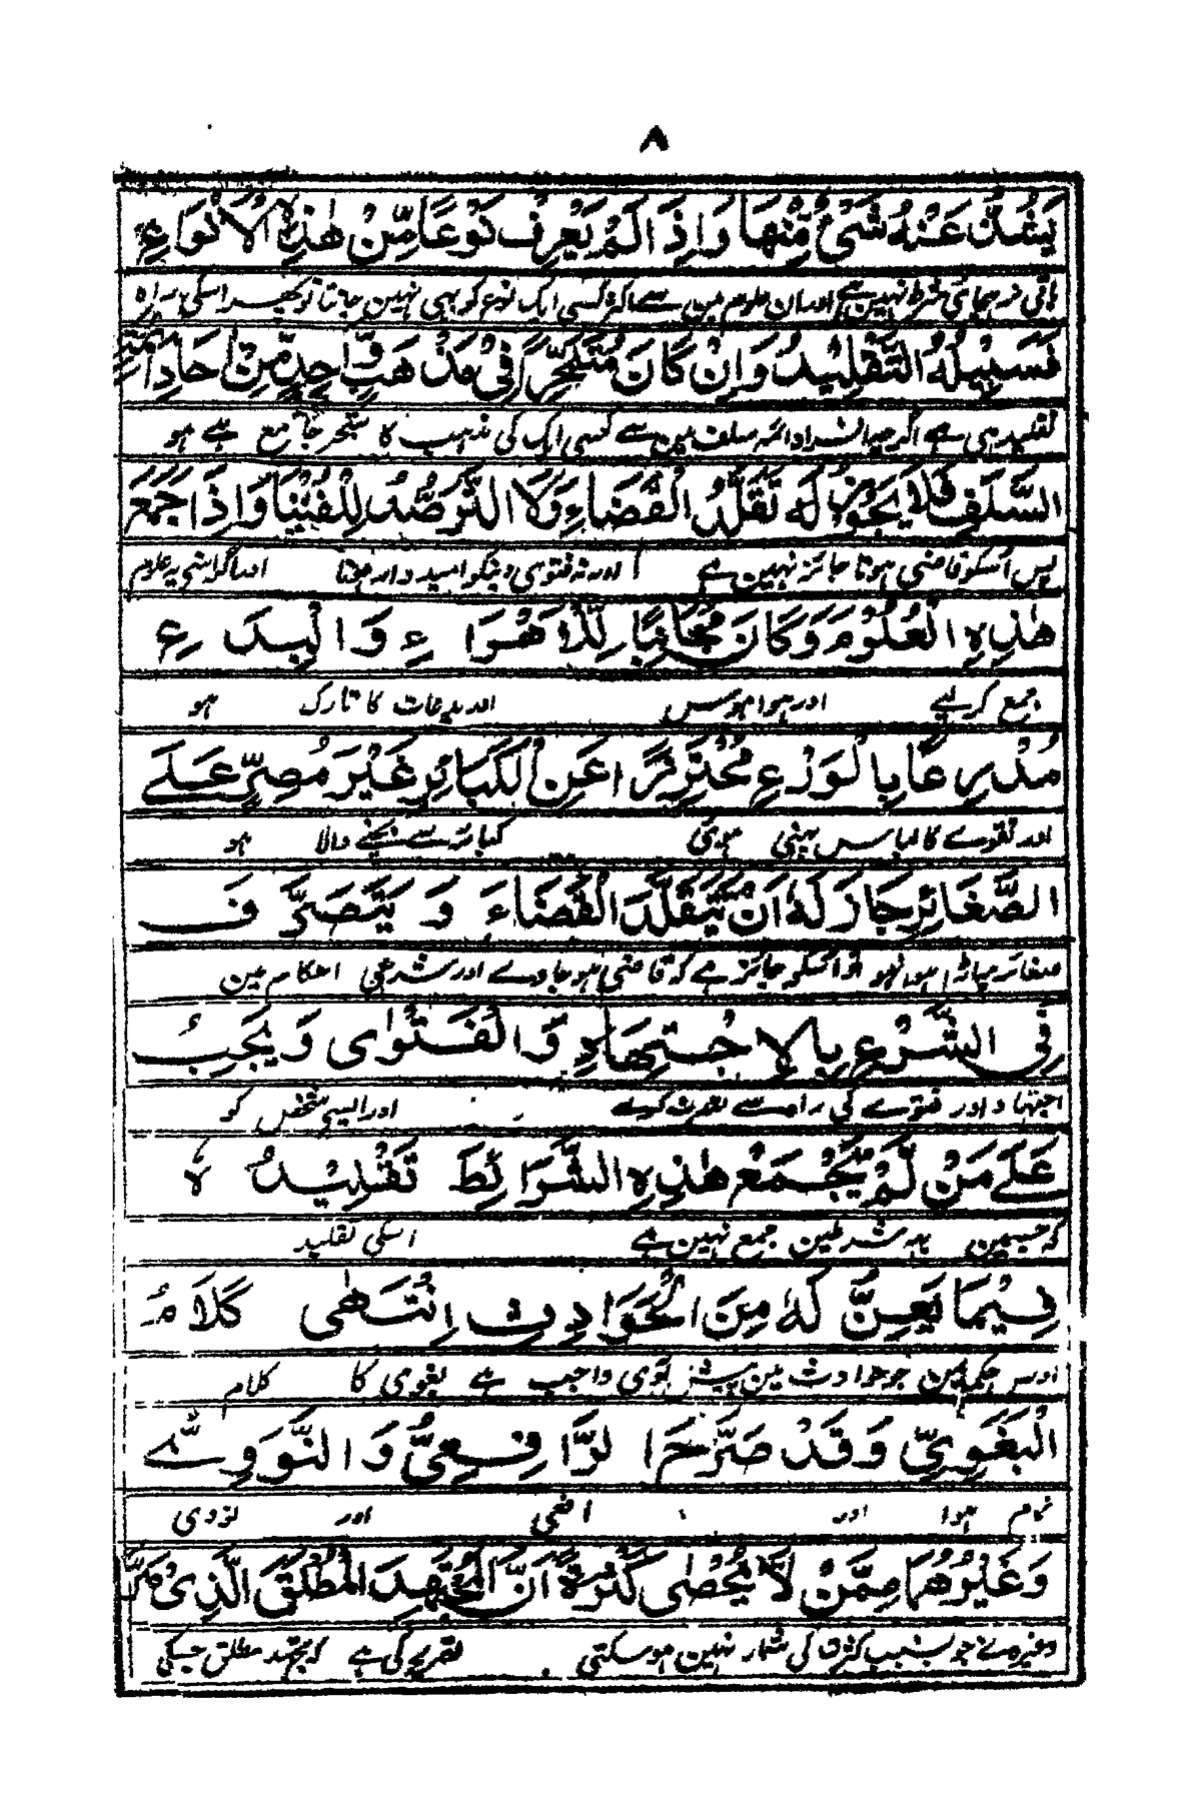 ٨
يَنْفُذُ عَنْهُ شَيْءٌ مِّنْهَا وَاِذَا لَمْ يَعْرِفْ نَوْعًا مِّنْ هٰذِهِ الْاَنْوَاعِ
باقی نرہجائی شرط نہین ہے اور ان علوم مین سے اگر کسی ایک نوع کو بہی نہین جانتا تو پھر اسکی راہ
فَسَبِيْلُهُ التَّقْلِيْدُ وَاِنْ كَانَ مُتَبَحِّرًا فِيْ مَذْهَبِ وَّاحِدٍ مِّنْ اٰحَادِ اَئِمَّةِ
تقلید ہی ہے اگرچہ افراد ائمہ سلف مین سے کسی ایک کی مذہب کا متبحر جامع ہے ہو
السَّلَفِ فَلَا يَجُوْزُ لَهٗ تَقَلُّدُ الْقَضَاءِ وَلَا التَّرَصُّدُ لِلْفُتْيَا وَاِذَا جَمَعَ
پس اسکو قاضی ہونا جائز نہین ہے اور نہ فتوی دینکو امیدوار ہونا اور اگر اشی یہ علوم
هٰذِهِ الْعُلُوْمَ وَكَانَ مُجَانِبًا لِلْاَهْوَاءِ وَالْبِدَعِ
جمع کر لیے اور ہوا ہوس اور بدعات کا تارک ہو
مُدَّرِعًا بِالْوَرْعِ مُحْتَرِزًا عَنِ الْكَبَائِرِ غَيْرَ مُصِرٍّ عَلَے
اور تقوے کا لباس پہنی ہوئی کبائر سے بچنے والا ہو
الصَّغَائِرِ جَازَ لَهٗ اَنْ يَّتَقَلَّدَ الْقَضَاءَ وَ يَتَصَرَّفَ
صغائر پر اڑا ہوا نہو تو اسکو جائز ہے کہ قاضی ہو جاوے اور شرعی احکام مین
فِى الشَّرْعِ بِالْاِجْتِهَادِ وَالْفَتْوٰى وَيَجِبُ
اجتہاد اور فتوے کی راہ سے تصرف کرے اور ایسی شخص کو
عَلٰے مَنْ لَّمْ يَجْمَعْ هٰذِهِ الشَّرَائِطَ تَقْلِيْدُهٗ
کہ جسمین یہ شرطین جمع نہین ہے اسکی تقلید
فِيْمَا يَعِنُّ لَهٗ مِنَ الْحَوَادِثِ اِنْتَهٰى كَلَامُ
جو حوادث مین پیش آوی واجب ہے بغوی کا کلام
الْبَغَوِيِّ وَقَدْ صَرَّحَ الرَّافِعِيُّ وَالنَّوَوِيُّ
تمام ہوا اور افعی اور نووی
وَغَيْرُهُمَا مِمَّنْ لَّا يُحْصٰى كَثْرَةً اَنَّ الْمُجْتَهِدَ الْمُطْلَقَ الَّذِىْ
وغیرہ نے جو بسبب کثرت کی شمار نہین ہو سکتی تصریح کی ہے کہ مجتہد مطلق جسکی